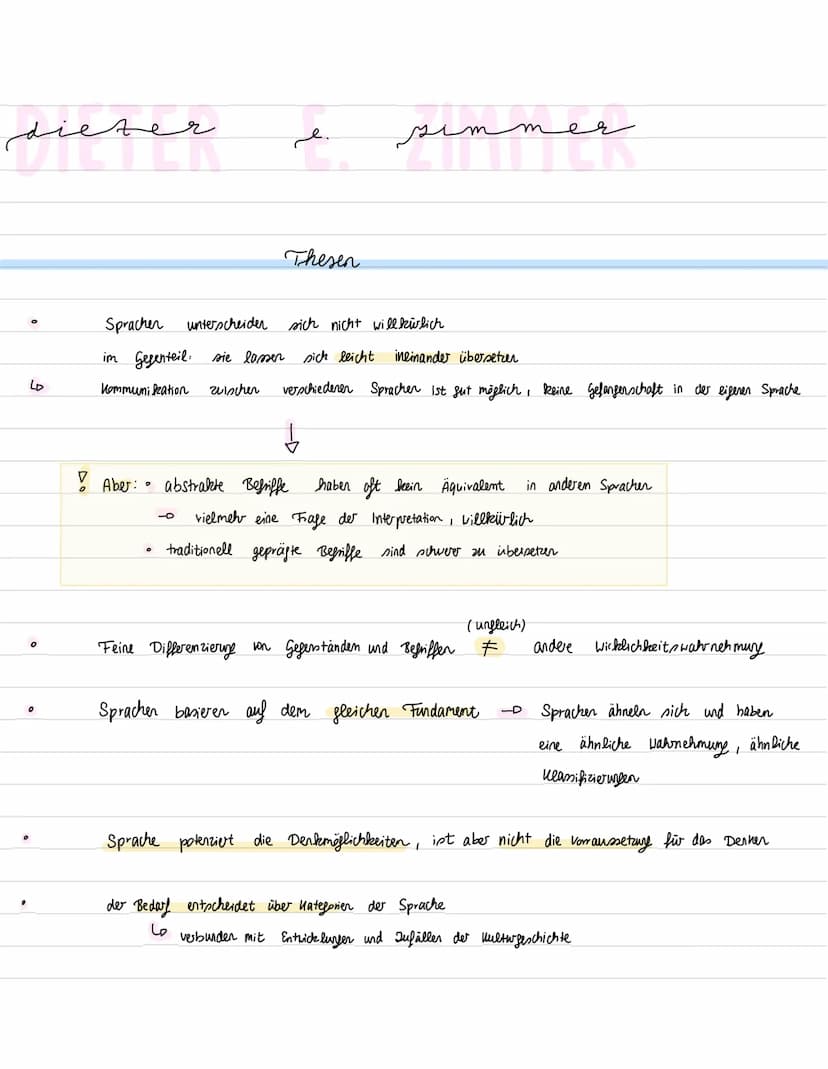 DIETER E. ZIMMER
dieter e. zimmer
Thesen
• Sprachen unterscheiden sich nicht willkürlich
im Gegenteil: sie lassen sich leicht ineinander übersetzen
↳ Kommunikation zwischen verschiedenen Sprachen ist gut möglich, keine Gefangenschaft in der eigenen Sprache
↓
! Aber: • abstrakte Begriffe haben oft kein Äquivalent in anderen Sprachen
→ vielmehr eine Frage der Interpretation, willkürlich
• traditionell geprägte Begriffe sind schwer zu übersetzen
(ungleich)
• Feine Differenzierung von Gegenständen und Begriffen ≠ andere Wirklichkeitswahrnehmung
• Sprachen basieren auf dem gleichen Fundament → Sprachen ähneln sich und haben
eine ähnliche Wahrnehmung, ähnliche
Klassifizierungen
• Sprache potenziert die Denkmöglichkeiten, ist aber nicht die Vorraussetzung für das Denken
• der Bedarf entscheidet über Kategorien der Sprache
↳ verbunden mit Entwicklungen und Zufällen der Kulturgeschichte